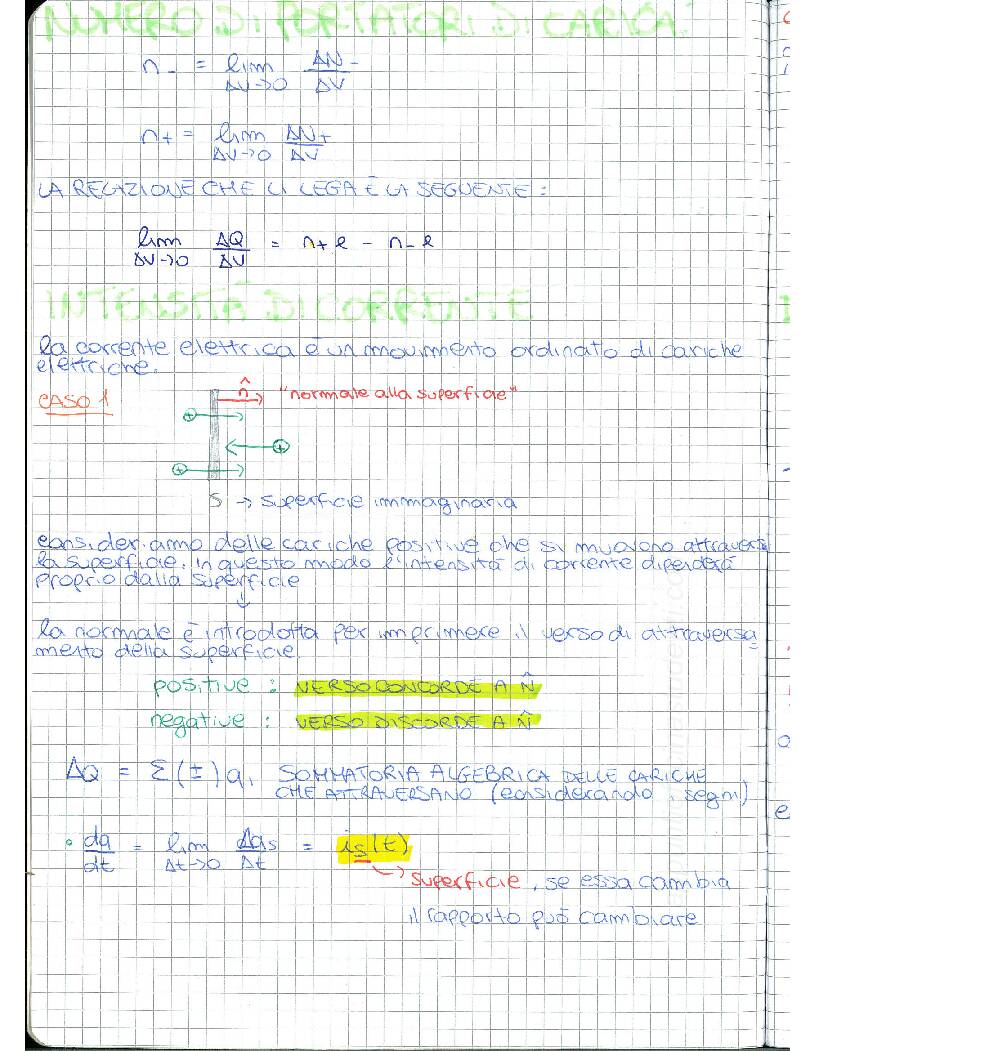 NUMERO DI PORTATORI DI CARICA:
n- = lim ΔN-/ΔV
ΔV→0
n+ = lim ΔN+/ΔV
ΔV→0
LA RELAZIONE CHE LI LEGA È LA SEGUENTE:
lim ΔQ/ΔV = n+ e - n- e
ΔV→0
INTENSITÀ DI CORRENTE
la corrente elettrica è un movimento ordinato di cariche
elettriche.
CASO 1
n̂ "normale alla superficie"
S → superficie immaginaria
consideriamo delle cariche positive che si muovono attraverso
la superficie. In questo modo l'intensità di corrente dipenderà
proprio dalla superficie
↓
la normale è introdotta per imprimere il verso di attraversa
mento della superficie
positive : VERSO CONCORDE A N̂
negative : VERSO DISCORDE A N̂
ΔQ = Σ(±)qi SOMMATORIA ALGEBRICA DELLE CARICHE
CHE ATTRAVERSANO (considerando i segni)
dq/dt = lim Δqs/Δt = is(t)
Δt→0
→ superficie, se essa cambia
il rapporto può cambiare